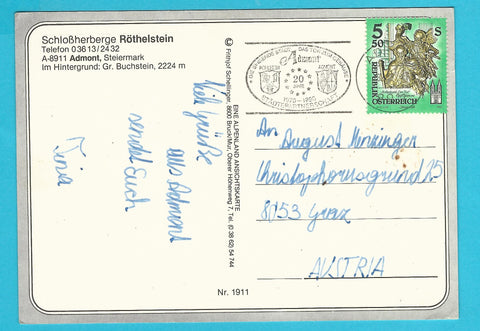 Schloßherberge Röthelstein
Telefon 0 36 13 / 24 32
A-8911 Admont, Steiermark
Im Hintergrund: Gr. Buchstein, 2224 m
Viele Grüße
aus Admont
sendet Euch
© Fritzpf Schellinger, 8600 Bruck/Mur, Oberer Höhenweg 7, Tel. (0 38 62) 54 744
EINE ALPENLAND ANSICHTSKARTE
Nr. 1911
Admont
ADMONT
20
JAHRE
STÄDTEPARTNERSCHAFT
5 S
50
REPUBLIK
ÖSTERREICH
An
August
Christophorusgrund 25
8053 Graz
AUSTRIA